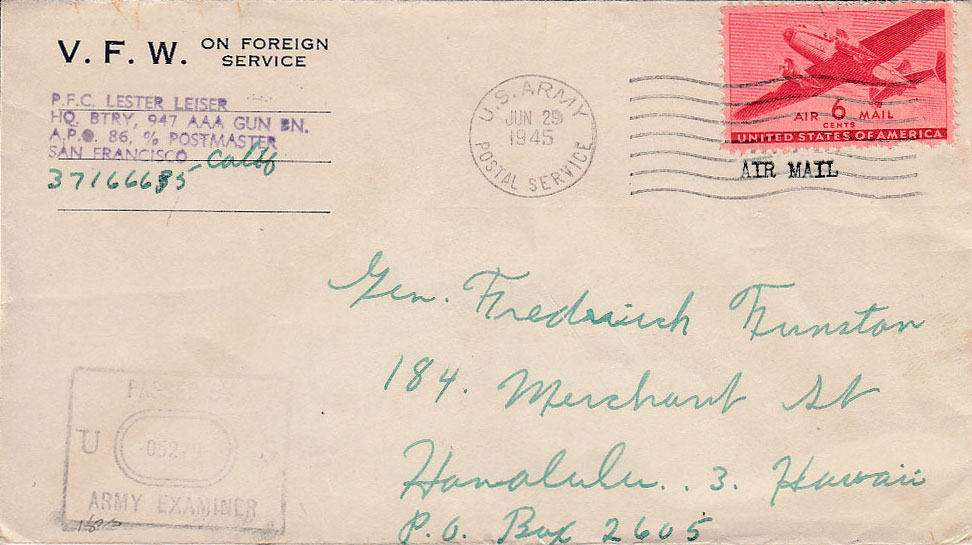 V. F. W. ON FOREIGN
SERVICE
P.F.C. LESTER LEISER
HQ. BTRY, 947 AAA GUN BN.
A.P.O. 86, % POSTMASTER
SAN FRANCISCO Calif
37166635
U.S. ARMY
JUN 29
1945
POSTAL SERVICE
AIR 6 MAIL
CENTS
UNITED STATES OF AMERICA
AIR MAIL
Gen. Fredrich Funston
184. Merchant St
Honolulu.. 3. Hawaii
P.O. Box 2605
U S
ARMY EXAMINER